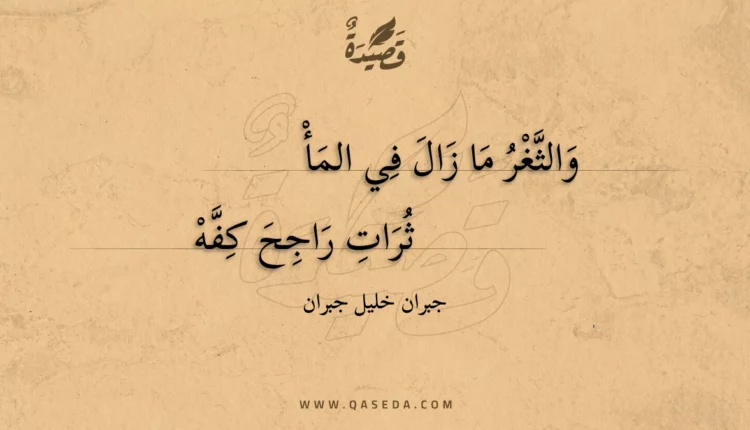 قَصِيدَةٌ
وَالثَّغْرُ مَا زَالَ فِي المَأْ
ثُرَاتِ رَاجِحَ كِفَّهْ
جبران خليل جبران
WWW.QASEDA.COM